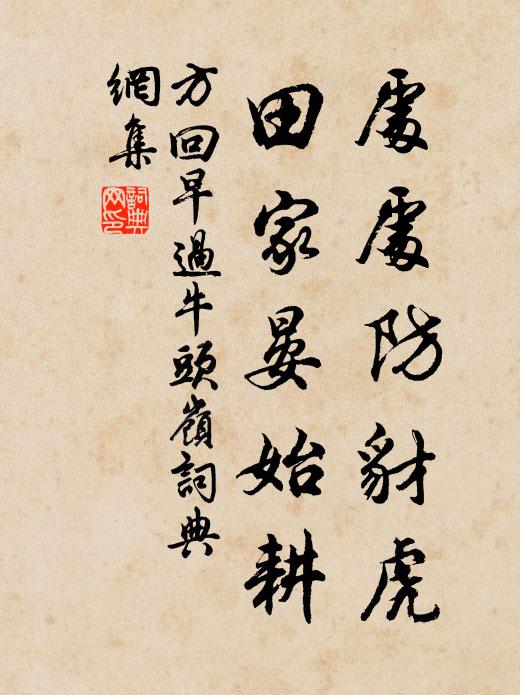 處處防豺虎
田家晏始耕
方回早過牛頭嶺詞典
網集
詞典
网印